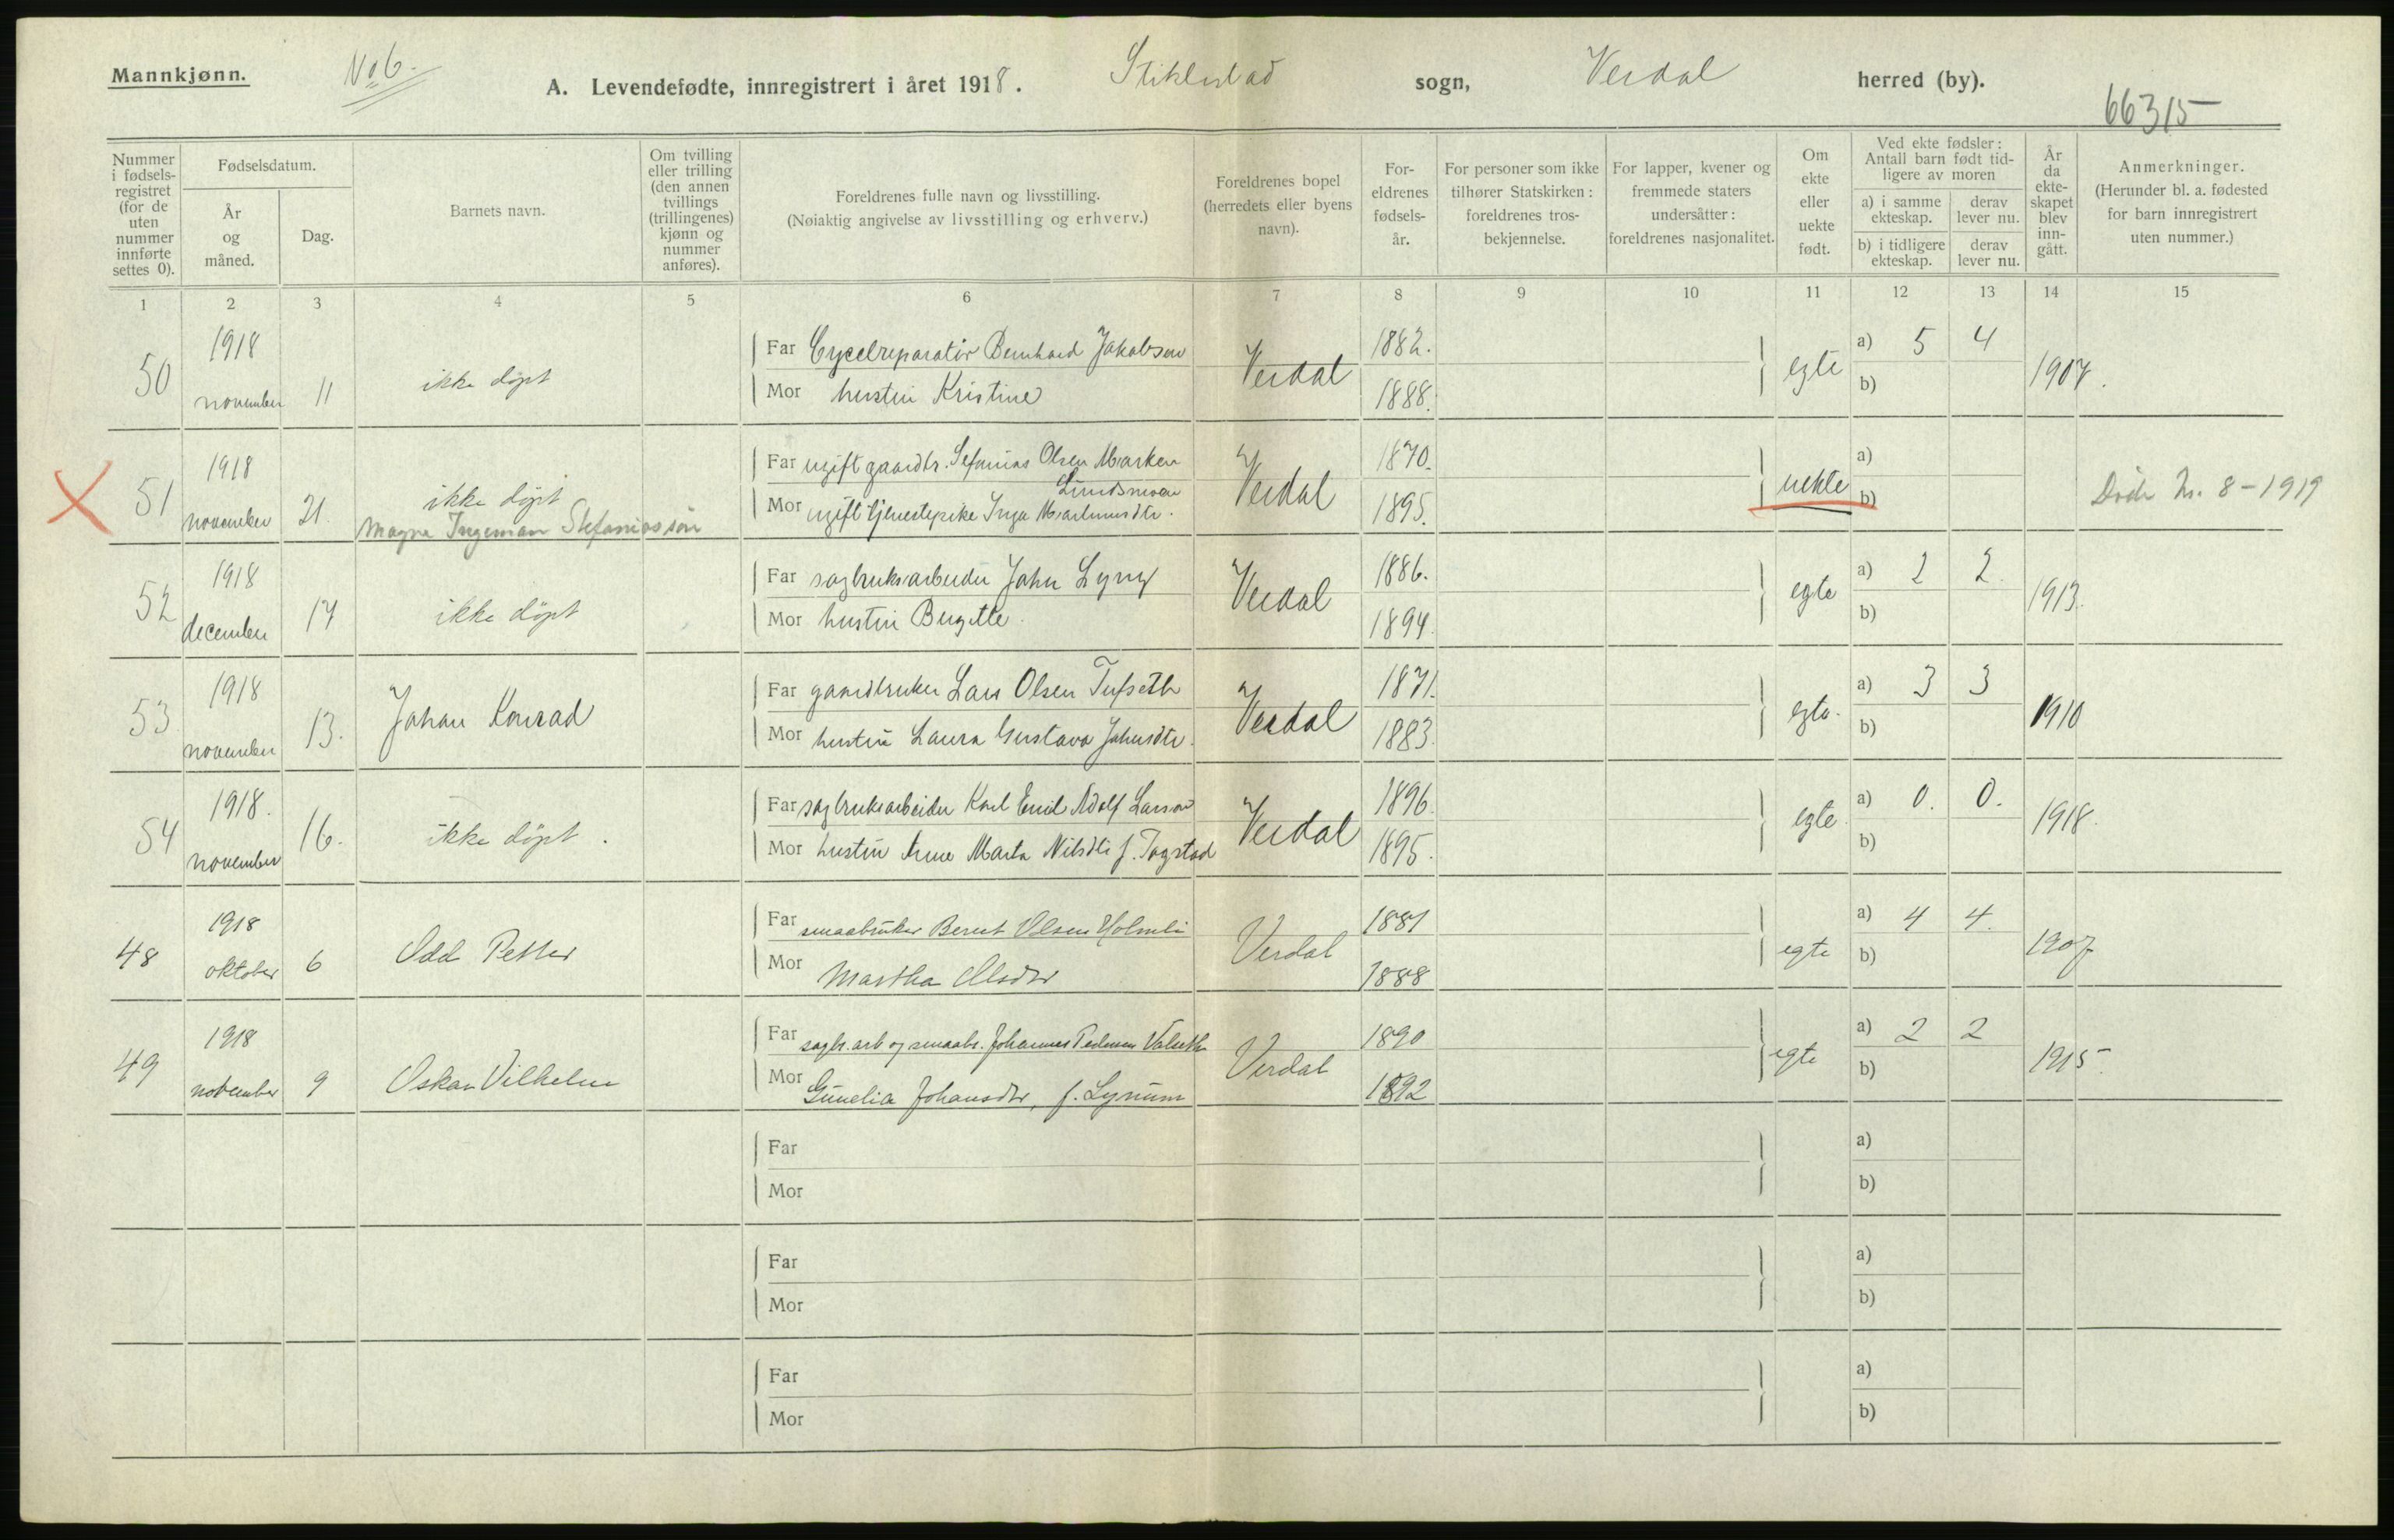 Mannkjønn.
No 6.
A. Levendefødte, innregistrert i året 1918. Stiklestad sogn, Verdal herred (by).
66315
Nummer i fødsels-registret (for de uten nummer innførte settes 0).
Fødselsdatum.
År og måned.
Dag.
Barnets navn.
Om tvilling eller trilling (den annen tvillings (trillingenes) kjønn og nummer anføres).
Foreldrenes fulle navn og livsstilling.
(Nøiaktig angivelse av livsstilling og erhverv.)
Foreldrenes bopel (herredets eller byens navn).
For-eldrenes fødsels-år.
For personer som ikke tilhører Statskirken: foreldrenes tros-bekjennelse.
For lapper, kvener og fremmede staters undersåtter: foreldrenes nasjonalitet.
Om ekte eller uekte født.
Ved ekte fødsler: Antall barn født tid-ligere av moren
a) i samme ekteskap.
derav lever nu.
b) i tidligere ekteskap.
derav lever nu.
År da ekte-skapet blev inn-gått.
Anmerkninger.
(Herunder bl. a. fødested for barn innregistrert uten nummer.)
1 2 3 4 5 6 7 8 9 10 11 12 13 14 15
50 1918 november 11 ikke døpt
Far Cycelreparatør Bernhard Jakobsen Verdal 1882. egte a) 5 4 1907.
Mor hustru Kristine 1888. b)
51 1918 november 21. ikke døpt
Magne Ingeman Stefaniassøn
Far ugift gaardbr. Stefanias Olsen Marken Verdal 1870. uekte a)
Lundsmoen
Mor ugift tjenestepike Inga 1895. b)
Døde Nr. 8-1919
52 1918 december 17 ikke døpt
Far sagbruksarbeider Johan Lyng Verdal 1886. egte a) 2 2. 1913.
Mor hustru Birgitte. 1894. b)
53 1918 november 13. Johan Konrad
Far gaardbruker Lars Olsen Tufseth Verdal 1871. egte. a) 3 3 1910
Mor hustru Laura Gustava Johnsdtr. 1883. b)
54 1918. november 16. ikke døpt.
Far sagbruksarbeider Karl Emil Adolf Larsen Verdal 1896. egte a) 0. 0. 1918.
Mor hustru Anne Marta Nilsdtr f. Togstad 1895. b)
48 1918 oktober 6 Odd Petter
Far smaabruker Bernt Olsen Holmli Verdal 1881 egte a) 4 4. 1907
Mor Martha Olsdtr 1888 b)
49 1918 november 9 Oskar Vilhelm
Far sagbr. arb og smaabr. Johannes Pedersen Valseth Verdal 1890 egte a) 2 2 1915.
Mor Gunelia Johansdtr, f. Lynum 1892 b)
Far a)
Mor b)
Far a)
Mor b)
Far a)
Mor b)